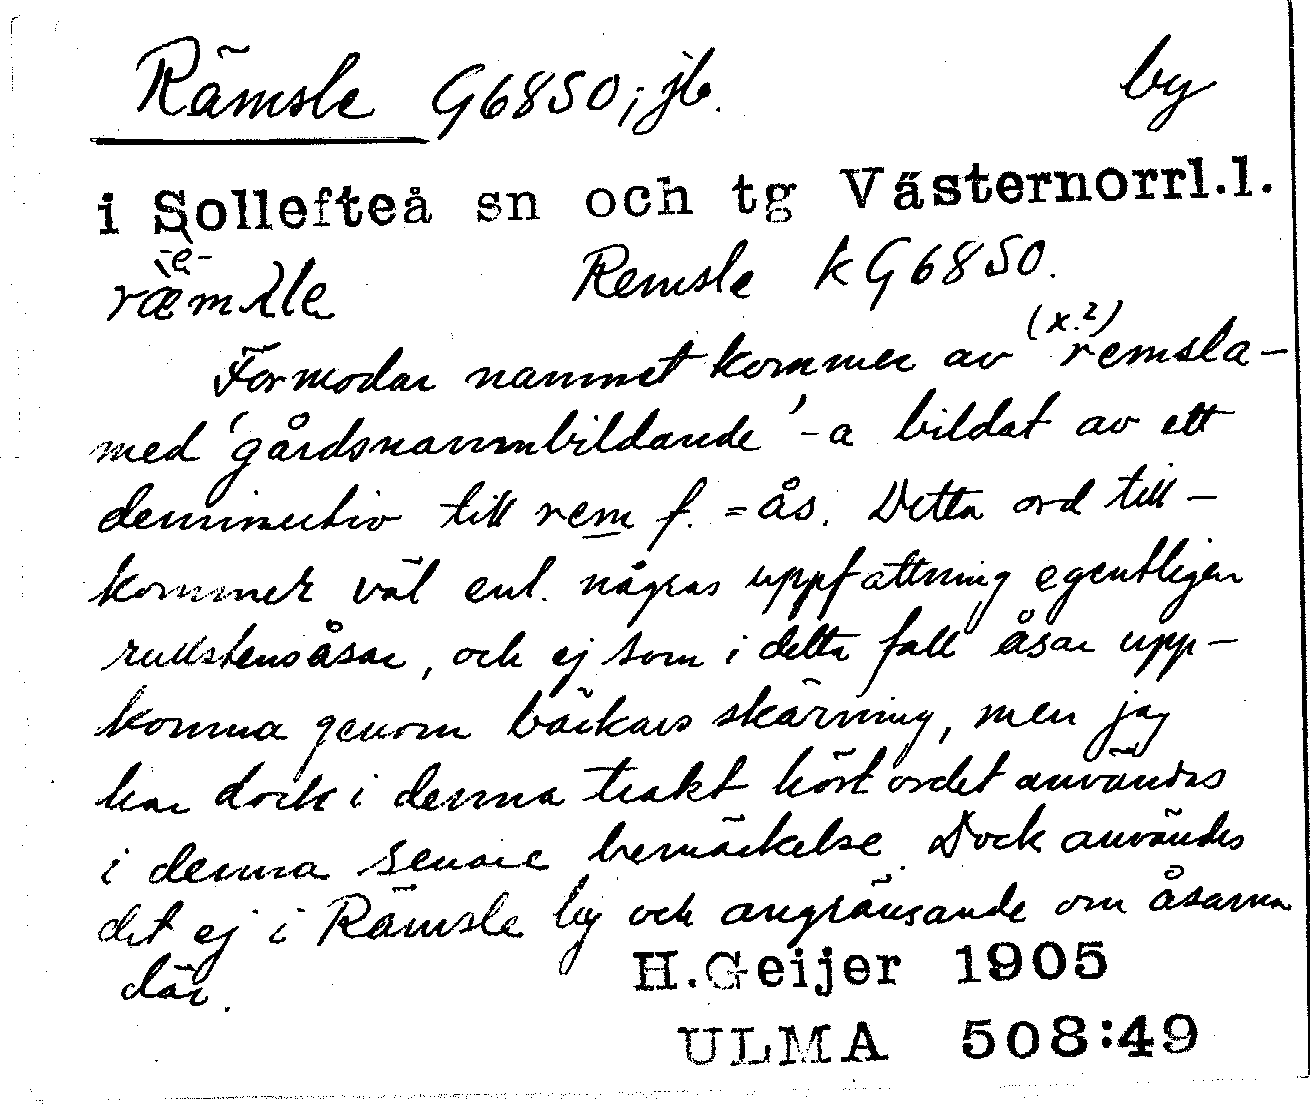 Rämsle G6850; jb. by
i Sollefteå sn och tg Västernorrl.l.
-e-
Remsle k G6850.
(x.?)
Förmodar namnet kommer av remsla-
med 'gårdsnamnbildande' -a bildat av ett
deminutiv till rem f. = ås. Detta ord till-
kommer väl enl. någras uppfattning egentligen
rullstensåsar, och ej som i detta fall åsar upp-
komna genom bäckars skärning, men jag
har dock i denna trakt hört ordet användas
i denna senare bemärkelse. Dock användes
det ej i Rämsle by och angränsande om åsarna
där.
H.Geijer 1905
ULMA 508:49